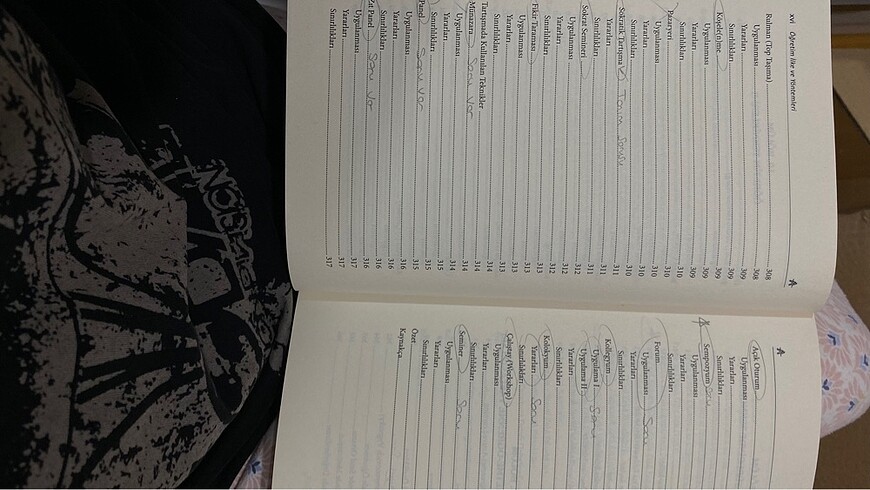 xvi Öğretim İlke ve Yöntemleri
Rulman (Top Taşıma) 308
Uygulanması 308
Yararları 309
Sınırlılıkları 309
Köşele(n)me 309
Uygulanması 309
Yararları 309
Sınırlılıkları 310
Pazaryeri 310
Uygulanması 310
Yararları 310
Sınırlılıkları 310
Sokratik Tartışma Tanım Sorusu 311
Yararları 311
Sınırlılıkları 311
Sokrat Semineri 312
Uygulanması 312
Yararları 312
Sınırlılıkları 312
Fikir Taraması 313
Uygulanması 313
Yararları 313
Sınırlılıkları 313
Tartışmada Kullanılan Teknikler 314
Münazara Soru var 314
Uygulanması 314
Yararları 314
Sınırlılıkları 315
Panel Soru var 315
Uygulanması 315
Yararları 316
Sınırlılıkları 316
Zıt Panel Soru var 316
Uygulanması 317
Yararları 317
Sınırlılıkları 317
Açık Oturum
Uygulanması
Yararları
Sınırlılıkları
Sempozyum
Uygulanması
Yararları
Sınırlılıkları
Forum
Uygulanması Soru
Yararları
Sınırlılıkları
Kollegyum
Uygulama I Soru
Uygulama II
Yararları
Sınırlılıkları
Kolokyum
Yararları Soru
Sınırlılıkları
Çalıştay (Workshop)
Uygulanması
Yararları
Sınırlılıkları
Seminer Soru
Uygulanması
Yararları
Sınırlılıkları
Özet
Kaynakça